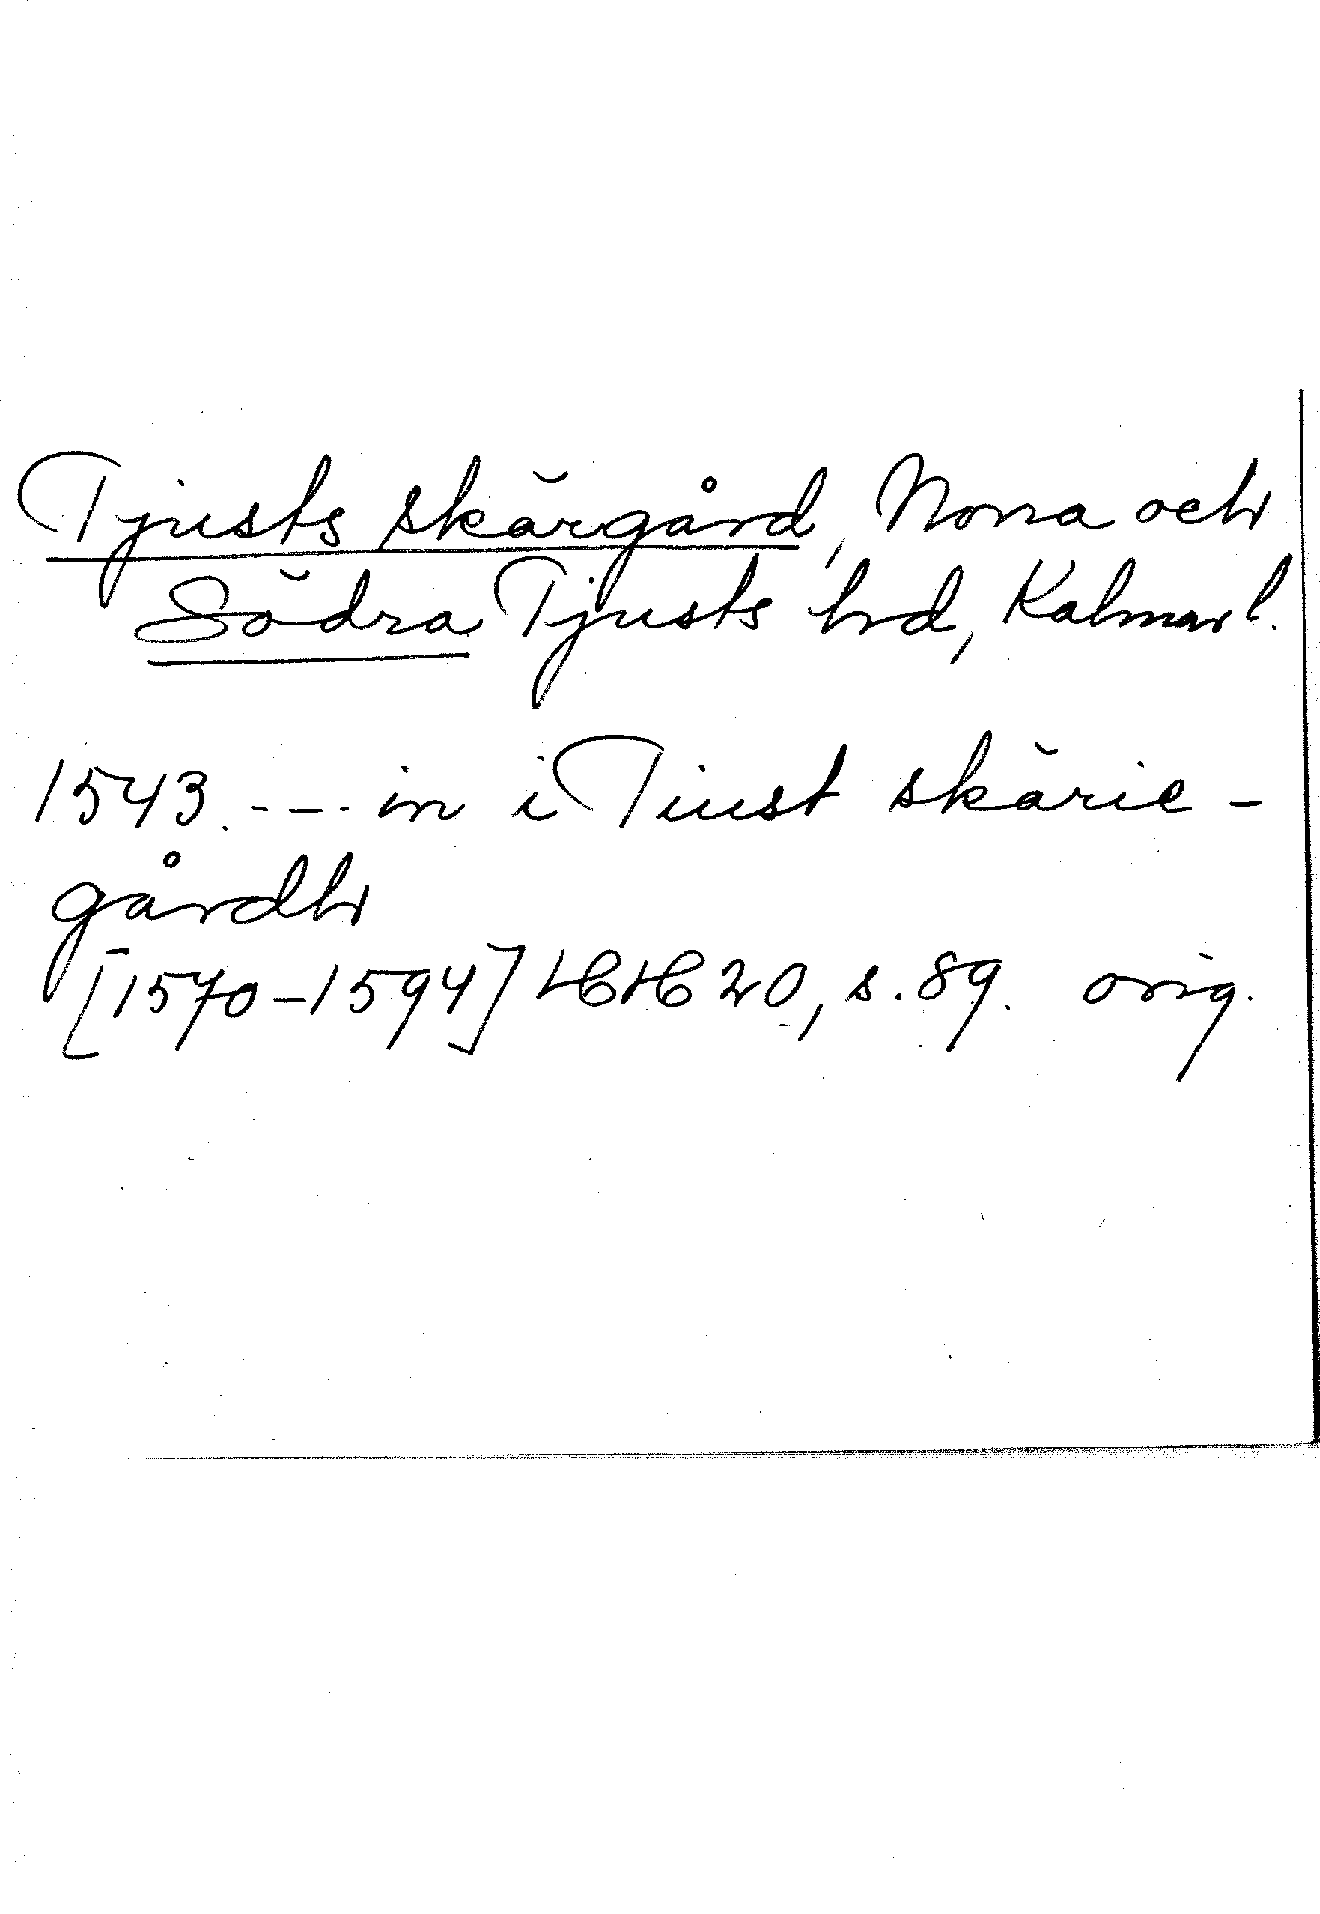 Tjusts skärgård, Norra och
Södra Tjusts hd, Kalmar l.
1543. --- in i Tiust skärie-
gårdh
[1570-1594] HH 20, s. 89. orig.